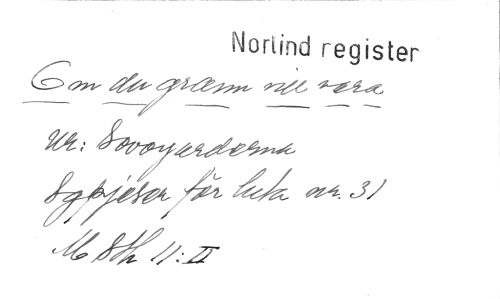 Norlind register
Om du grann vill vara
ur: Savoyarderna
Sgpjeser för luta nr. 31
M Sth 11: II